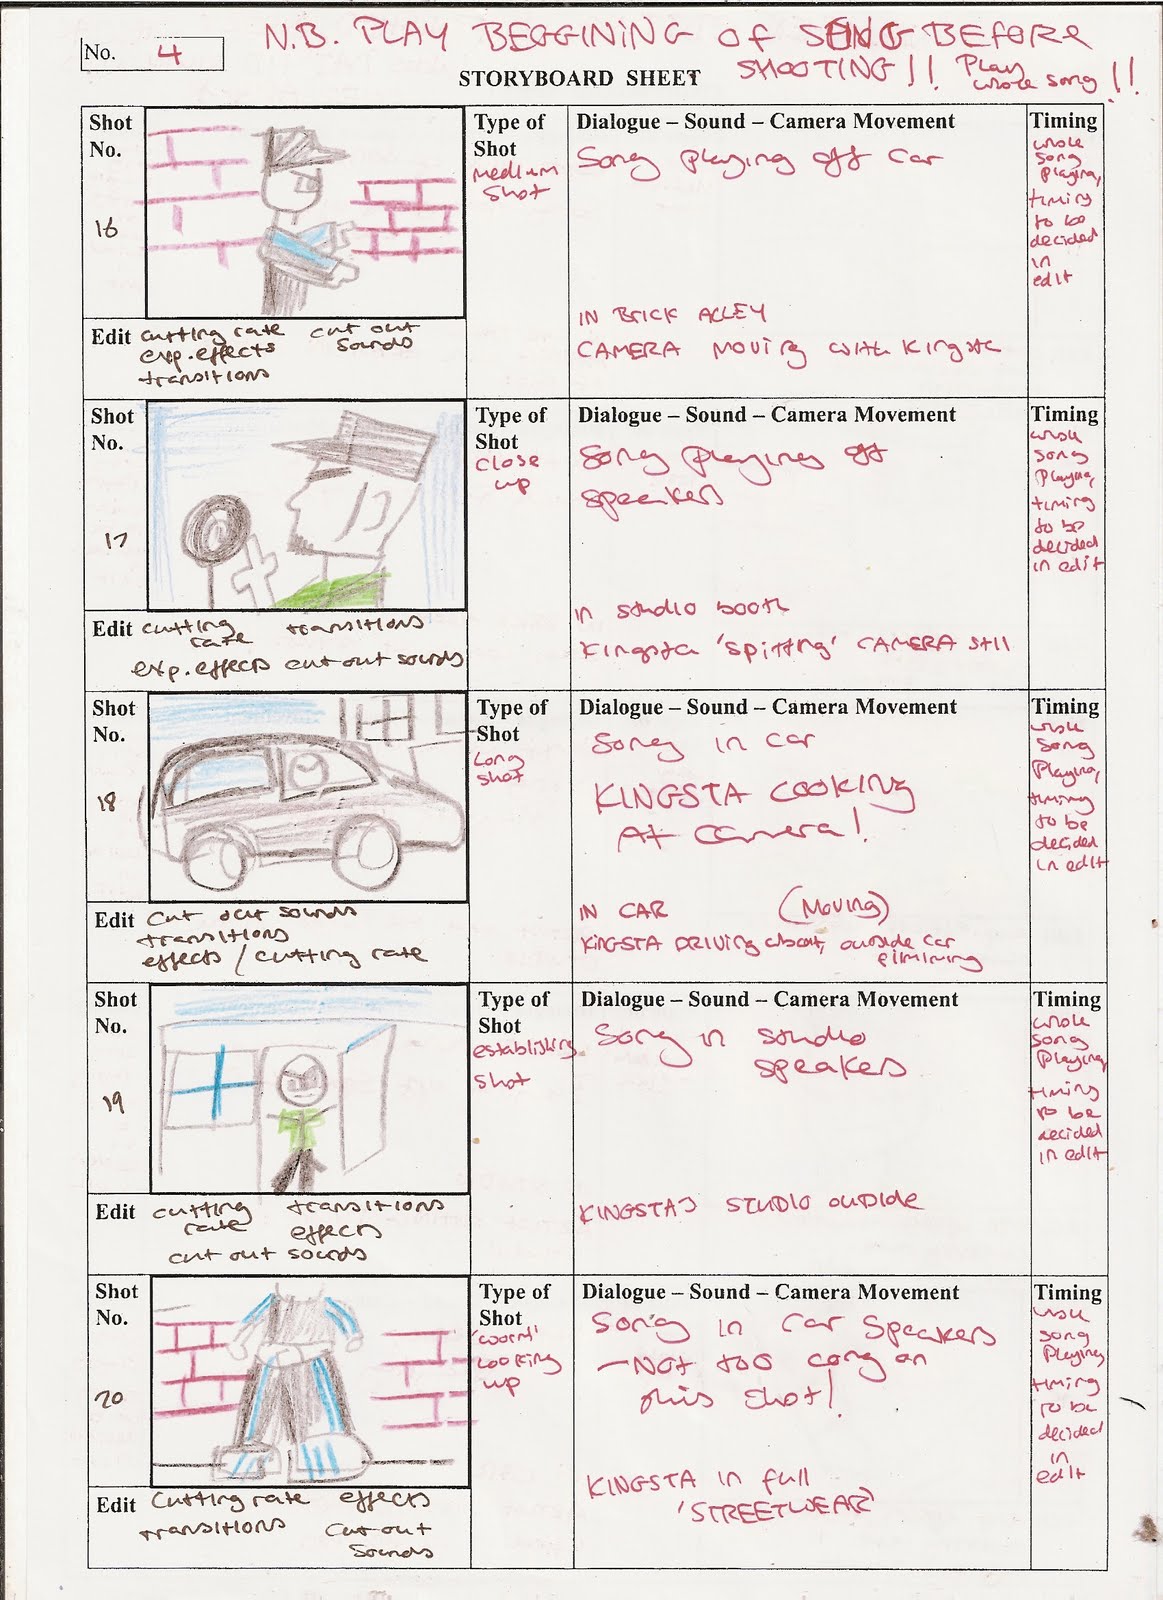 No. 4
N.B. PLAY BEGGINING OF SONG BEFORE
SHOOTING!! Play
whole song!!
STORYBOARD SHEET
Shot
No.
16
Type of
Shot
medium
shot
Dialogue – Sound – Camera Movement
Song playing off car
IN BRICK ALLEY
CAMERA MOVING with Kingsta
Timing
whole
song
playing,
timing
to be
decided
in
edit
Edit cutting rate cut out
exp. effects sounds
transitions
Shot
No.
17
Type of
Shot
close
up
Dialogue – Sound – Camera Movement
Song playing off
speakers
in studio booth
Kingsta 'spitting' CAMERA still
Timing
whole
song
playing,
timing
to be
decided
in edit
Edit cutting transitions
rate
exp. effects cut out sounds
Shot
No.
18
Type of
Shot
long
shot
Dialogue – Sound – Camera Movement
Song in car
KINGSTA LOOKING
AT camera!
IN CAR (Moving)
KINGSTA DRIVING about, outside car
filmining
Timing
whole
song
Playing,
timing
to be
decided
in edit
Edit cut out sounds
transitions
effects / cutting rate
Shot
No.
19
Type of
Shot
establishing
shot
Dialogue – Sound – Camera Movement
Song in studio
speakers
KINGSTAS STUDIO outside
Timing
whole
song
playing
timing
to be
decided
in edit
Edit cutting transitions
rate effects
cut out sounds
Shot
No.
20
Type of
Shot
'worm'
looking
up
Dialogue – Sound – Camera Movement
Song in car speakers
– Not too long on
this shot!
KINGSTA in full
'STREETWEAR'
Timing
whole
song
Playing
timing
to be
decided
in
edit
Edit cutting rate effects
transitions cut out
sounds